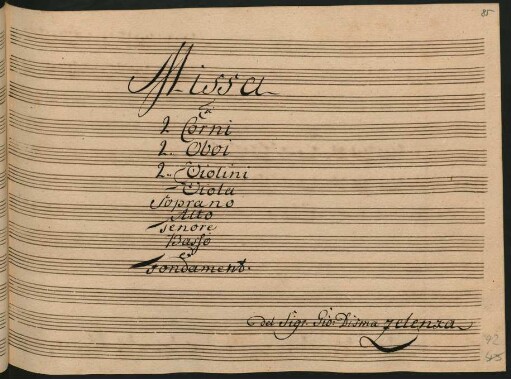 85
Missa
à
2. Corni
2.. Oboi
2.. Violini
Viola
Soprano
Alto
Tenore
Basso
e
Fondament.
del Sigr. Gio: Disma Zelenza
92